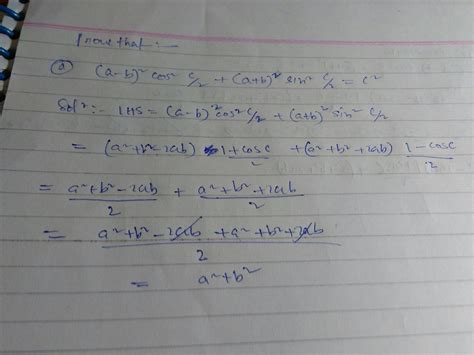 Prove that :—
(a) (a-b)² cos² C/2 + (a+b)² sin² C/2 = c²
Solⁿ:- LHS = (a-b)² cos² C/2 + (a+b)² sin² C/2
= (a²+b²-2ab) 1+cosC/2 + (a²+b²+2ab) 1-cosC/2
= a²+b²-2ab/2 + a²+b²+2ab/2
= a²+b²-2ab+a²+b²+2ab/2
= a²+b²